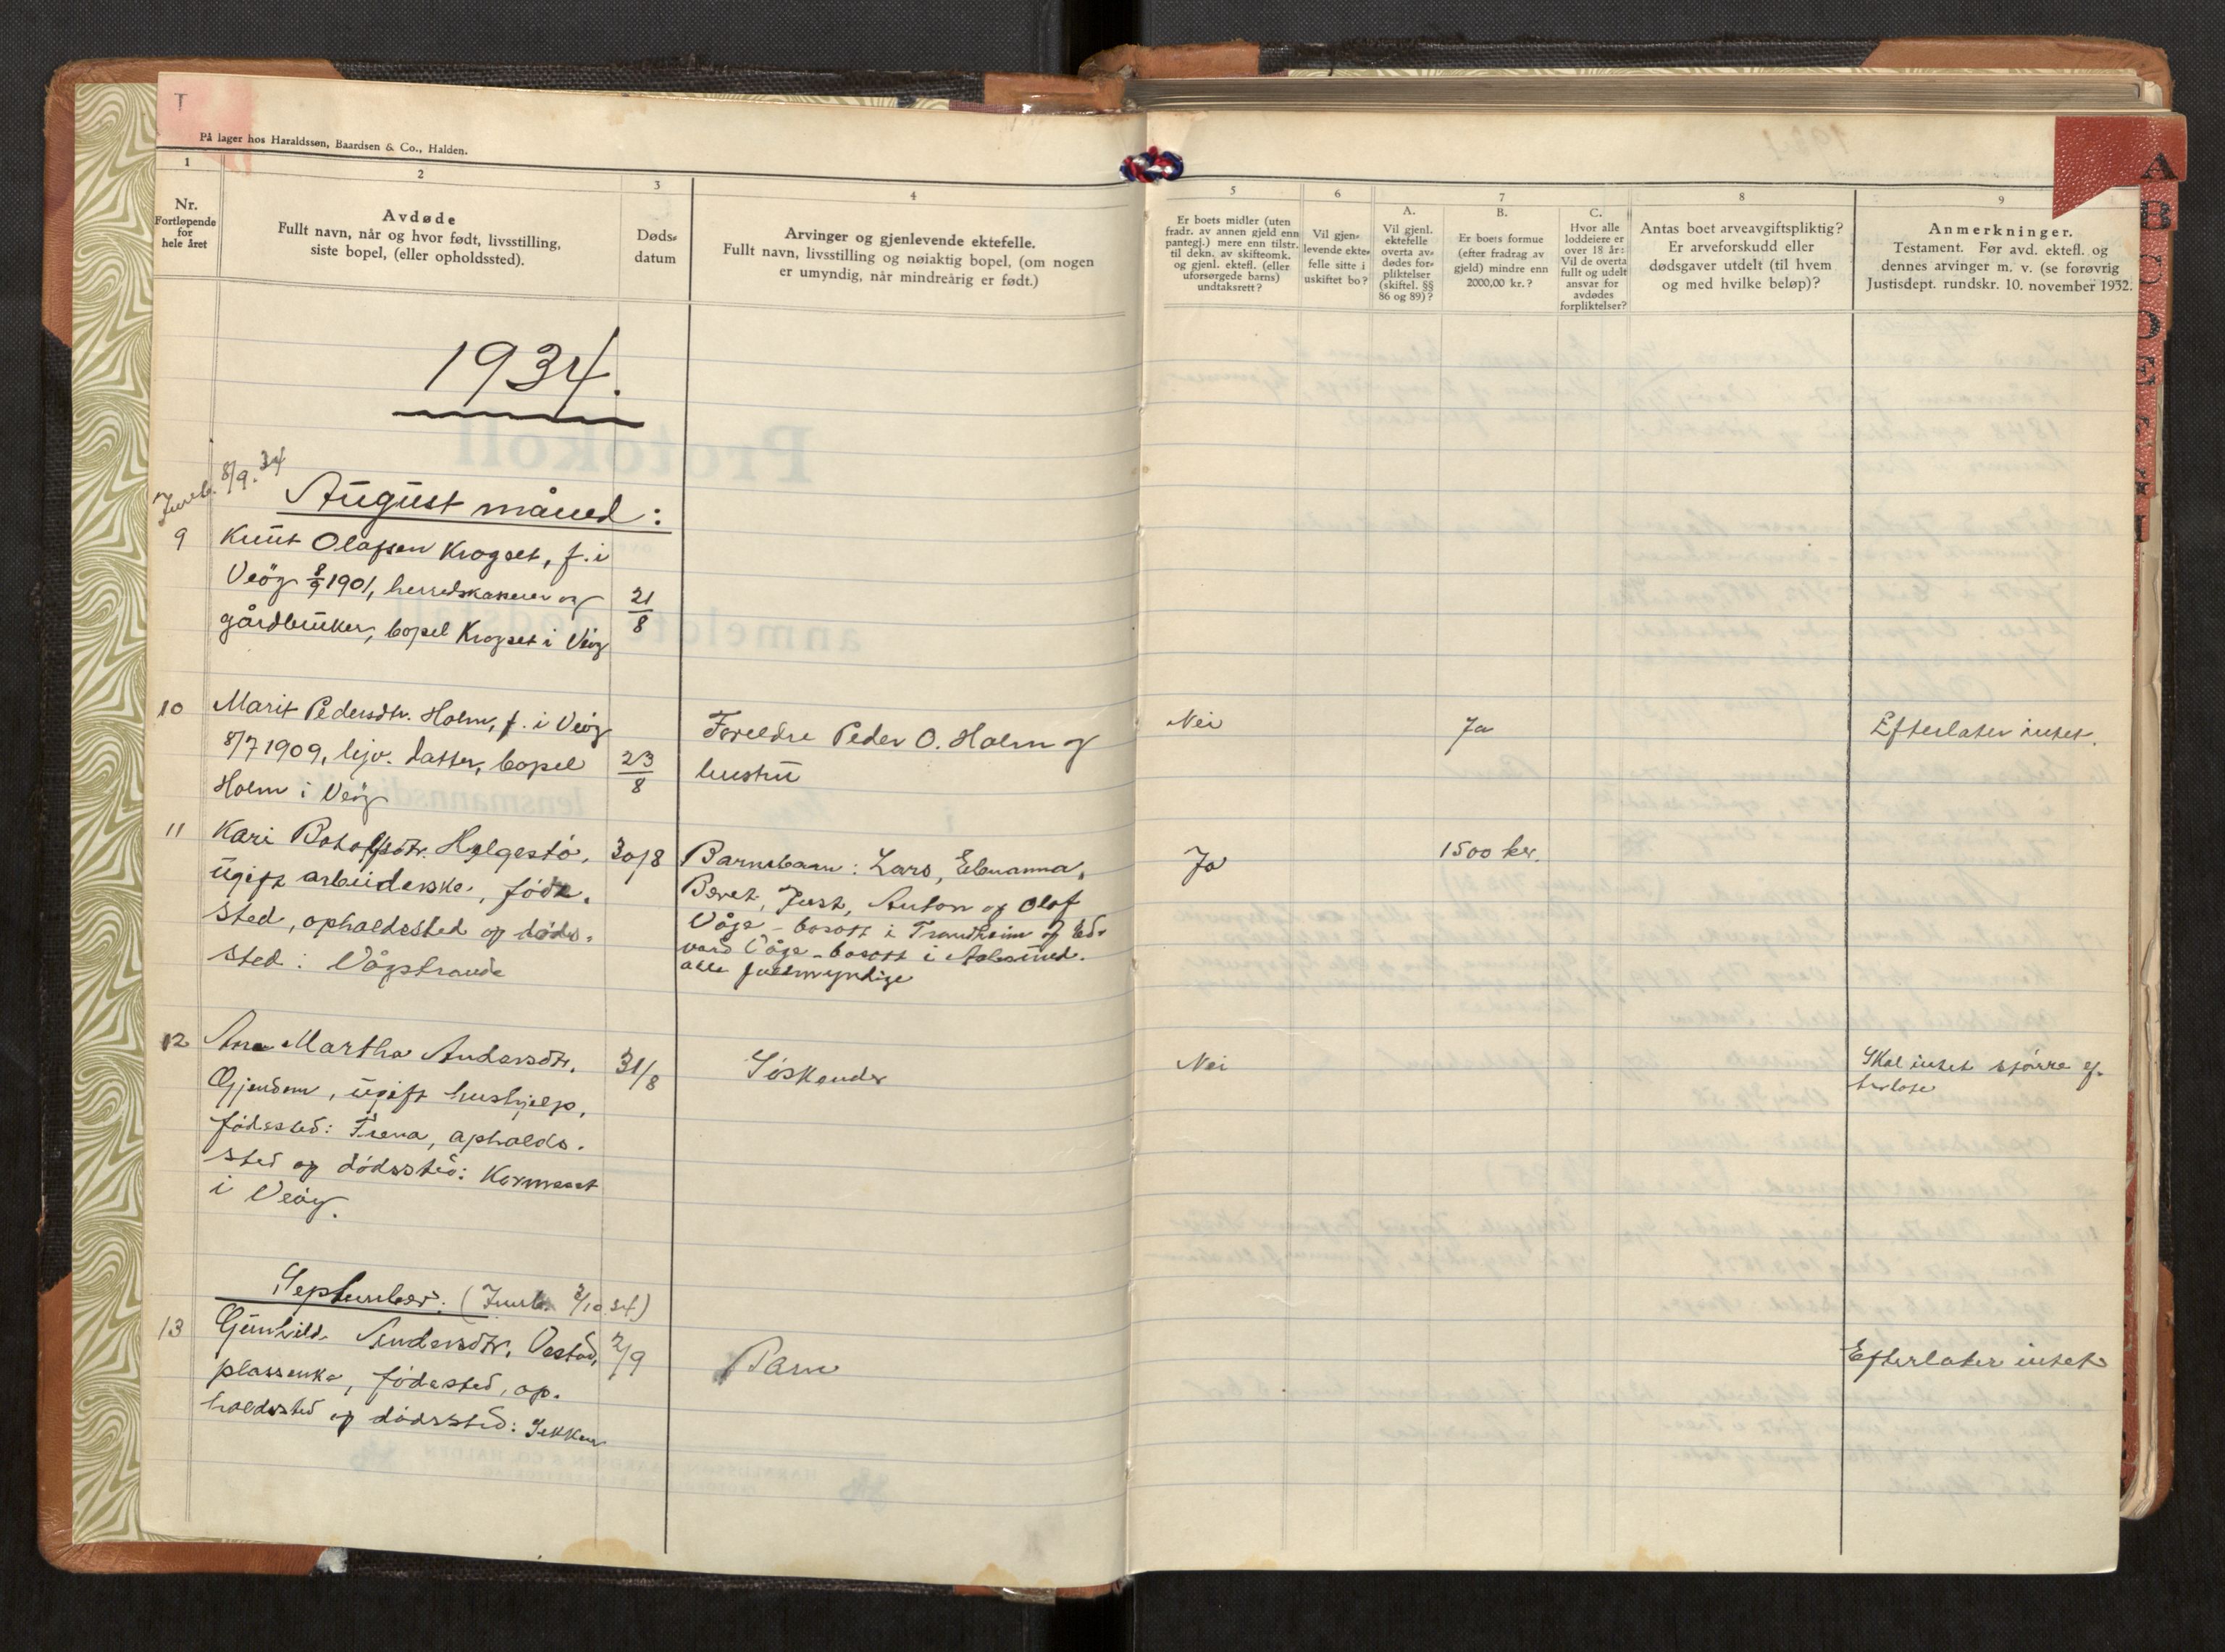 T
På lager hos Haraldssøn, Baardsen & Co., Halden.
1
2
3
4
5
6
7
8
9
Nr.
Fortløpende
for
hele året
Avdøde
Fullt navn, når og hvor født, livsstilling,
siste bopel, (eller opholdssted).
Døds-
datum
Arvinger og gjenlevende ektefelle.
Fullt navn, livsstilling og nøiaktig bopel, (om nogen
er umyndig, når mindreårig er født.)
Er boets midler (uten
fradr. av annen gjeld enn
pantegj.) mere enn tilstr.
til dekn. av skifteomk.
og gjenl. ektefl. (eller
uforsørgede barns)
undtaksrett?
Vil gjen-
levende ekte-
felle sitte i
uskiftet bo?
A.
Vil gjenl.
ektefelle
overta av-
dødes for-
pliktelser
(skiftel. §§
86 og 89)?
B.
Er boets formue
(efter fradrag av
gjeld) mindre enn
2000,00 kr.?
C.
Hvor alle
loddeiere er
over 18 år:
Vil de overta
fullt og udelt
ansvar for
avdødes
forpliktelser?
Antas boet arveavgiftspliktig?
Er arveforskudd eller
dødsgaver utdelt (til hvem
og med hvilke beløp)?
Anmerkninger.
Testament. Før avd. ektefl. og
dennes arvinger m. v. (se forøvrig
Justisdept. rundskr. 10. november 1932.
1934.
8/9. 34
August måned:
9
Knut Olafsen Krogset, f. i
Veöy 8/9 1901, herredskaserer og
gårdbruker, bopel Krogset i Veöy
21/8
10
Marit Pedersdtr. Holm, f. i Veöy
8/7 1909, hjv. datter, bopel
Holm i Veöy
23/8
Foreldre Peder O. Holm og
hustru
Nei
Ja
Efterlater intet.
11
Kari Botolfsdtr. Helgestö,
ugift arbeiderske, föde-
sted, opholdssted og döds-
sted: Vågstrande
30/8
Barnebarn: Lars,
Beret, Just, Anton og Olof
Våge - bosatt i Trondheim og Ed-
vard Våge - bosatt i Aalesund.
alle fullmyndige
Ja
1500 kr.
12
Ane Martha Andersdtr.
Gjendem, ugift hushjelp,
födested: Frena, opholds-
sted og dödssted: Kormeset
i Veöy.
31/8
Söskender
Nei
Skal intet större ef-
terlate
September. ( 2/10 34)
13
Gunhild Andersdtr. Oestad,
plassenke, födested, op-
holdssted og dödssted: Sekken
2/9
Barn
Efterlater intet
A
B
C
D
E